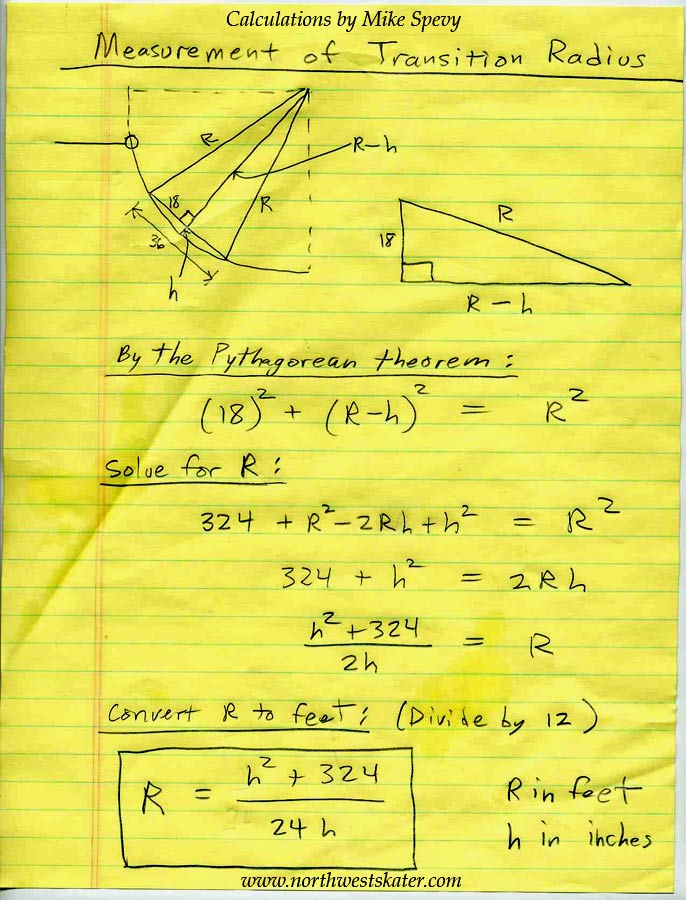 Calculations by Mike Spevy
Measurement of Transition Radius
R
R-h
18
R
36
h
R
18
R - h
By the Pythagorean theorem:
(18)² + (R-h)² = R²
Solve for R:
324 + R² - 2Rh + h² = R²
324 + h² = 2Rh
h² + 324 / 2h = R
Convert R to feet: (Divide by 12)
R = h² + 324 / 24h
R in feet
h in inches
www.northwestskater.com